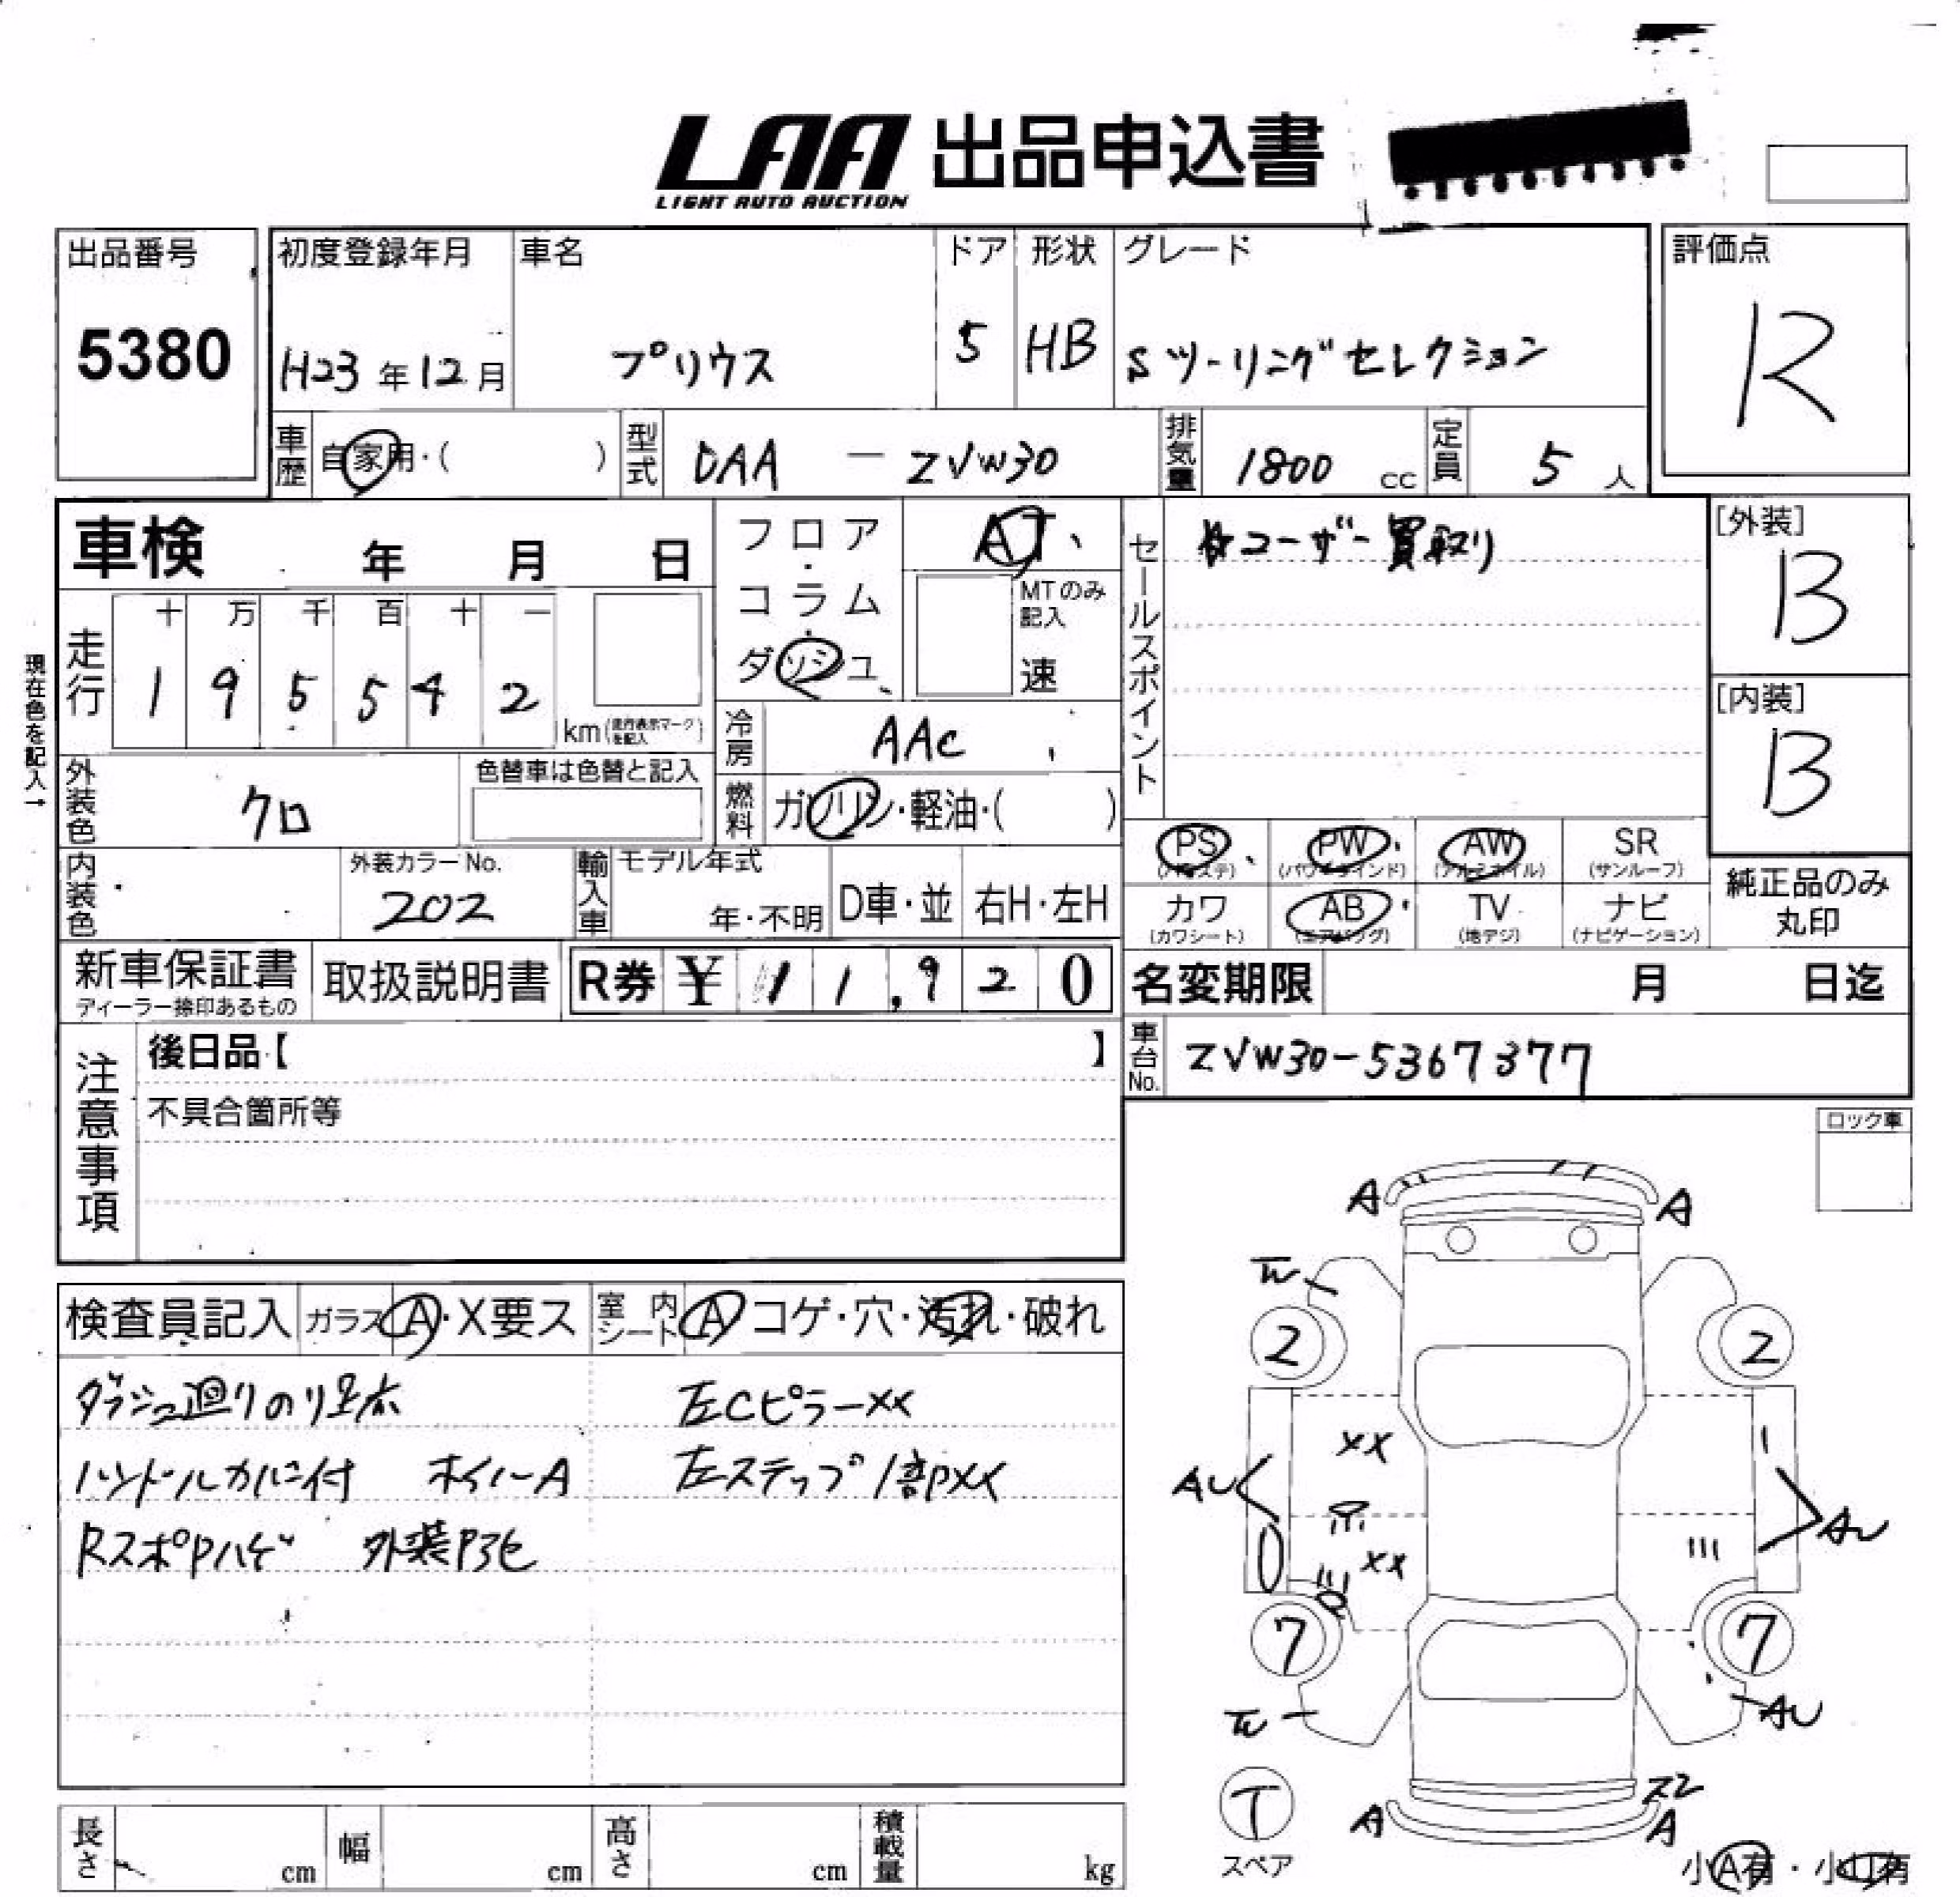 LAA 出品申込書
LIGHT AUTO AUCTION
出品番号
5380
初度登録年月
H23年12月
車名
プリウス
ドア
5
形状
HB
グレード
Sツーリングセレクション
評価点
R
車歴 自家用・( )
型式 DAA－ZVW30
排気量 1800 cc
定員 5人
車検 年 月 日
フロア・コラム・ダッシュ
AT
MTのみ記入
速
セールスポイント
☆ユーザー買取り
[外装]
B
[内装]
B
現在色を記入→
走行
十 万 千 百 十 一
1 9 5 5 4 2
km(走行表示マークを記入)
冷房 AAC
燃料 ガソリン・軽油・( )
外装色 クロ
色替車は色替と記入
内装色
外装カラーNo.
202
輸入車 モデル年式
年・不明
D車・並 右H・左H
PS(パワステ) PW(パワーウインド) AW(アルミホイル) SR(サンルーフ)
カワ(カワシート) AB(エアバッグ) TV(地デジ) ナビ(ナビゲーション)
純正品のみ
丸印
新車保証書
ディーラー捺印あるもの
取扱説明書
R券 ¥ 11,920
名変期限 月 日迄
車台No. ZVW30-5367377
注意事項
後日品【 】
不具合箇所等
ロック車
検査員記入 ガラス A・X要ス 室内シート A コゲ・穴・汚れ・破れ
ダッシュ廻りのり跡 左Cピラーxx
ハンドルカバー付 ホイルA 左ステップ1部xx
RスポPハゲ
A A
2 2
xx
AU AU
xx
7 7
AU
T
スペア
A A
小A有・小凹有
長さ cm 幅 cm 高さ cm 積載量 kg